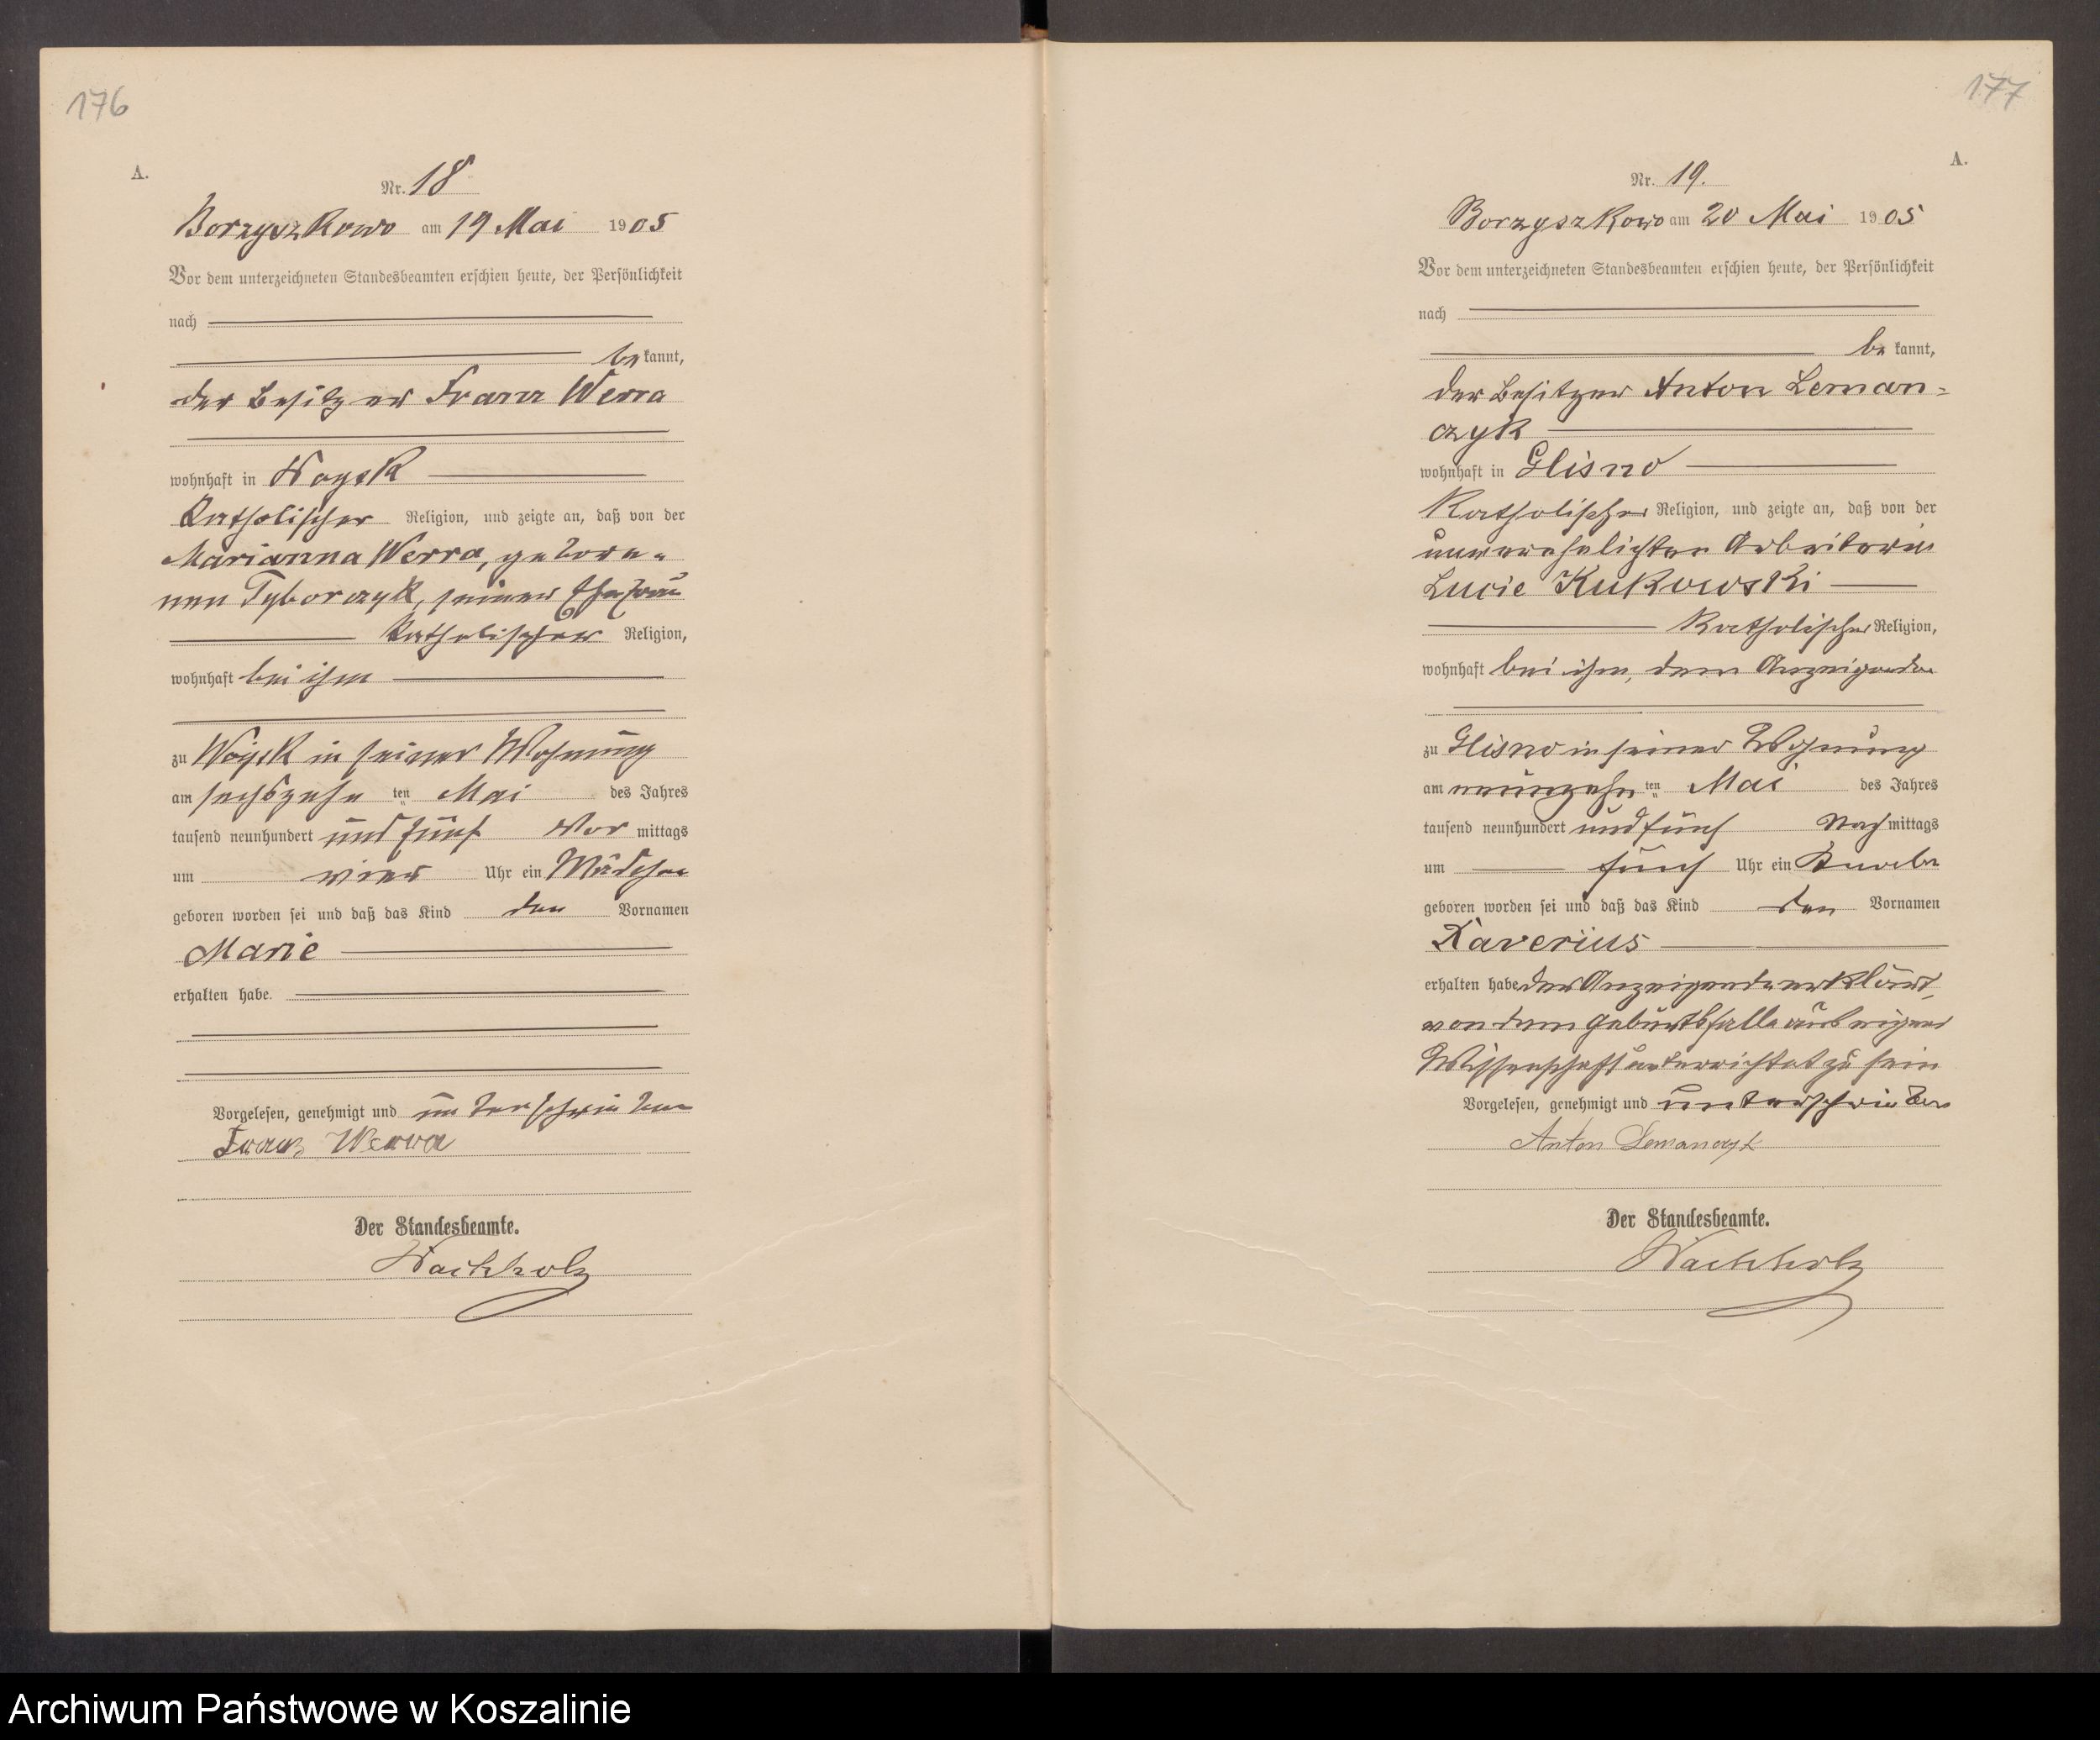 176
A.
Nr. 18
Borzyszkowo am 19 Mai 1905
Vor dem unterzeichneten Standesbeamten erschien heute, der Persönlichkeit
nach
be kannt,
der Besitzer Franz Werra
wohnhaft in Woysk
katholischer Religion, und zeigte an, daß von der
Marianna Werra, gebore-
nen Tyborczyk, seiner Ehefrau
katholischer Religion,
wohnhaft bei ihm
zu Woysk in seiner Wohnung
am sechszehn ten Mai des Jahres
tausend neunhundert und fünf Vor mittags
um vier Uhr ein Mädchen
geboren worden sei und daß das Kind den Vornamen
Marie
erhalten habe.
Vorgelesen, genehmigt und unterschrieben
Franz Werra
Der Standesbeamte.
Wachholz
177
A.
Nr. 19.
Borzyszkowo am 20 Mai 1905
Vor dem unterzeichneten Standesbeamten erschien heute, der Persönlichkeit
nach
be kannt,
der Besitzer Anton Leman-
czyk
wohnhaft in Glisno
katholischer Religion, und zeigte an, daß von der
unverehelichten Arbeiterin
Lucie Kukowski
katholischer Religion,
wohnhaft bei ihm, dem Anzeigenden
zu Glisno in seiner Wohnung
am neunzehn ten Mai des Jahres
tausend neunhundert und fünf Nach mittags
um fünf Uhr ein Knabe
geboren worden sei und daß das Kind den Vornamen
Xaverius
erhalten habe der Anzeigende erklärt,
von dem Geburtsfalle aus eigener
Wissenschaft unterrichtet zu sein
Vorgelesen, genehmigt und unterschrieben
Anton Lemanczyk
Der Standesbeamte.
Wachholz
Archiwum Państwowe w Koszalinie